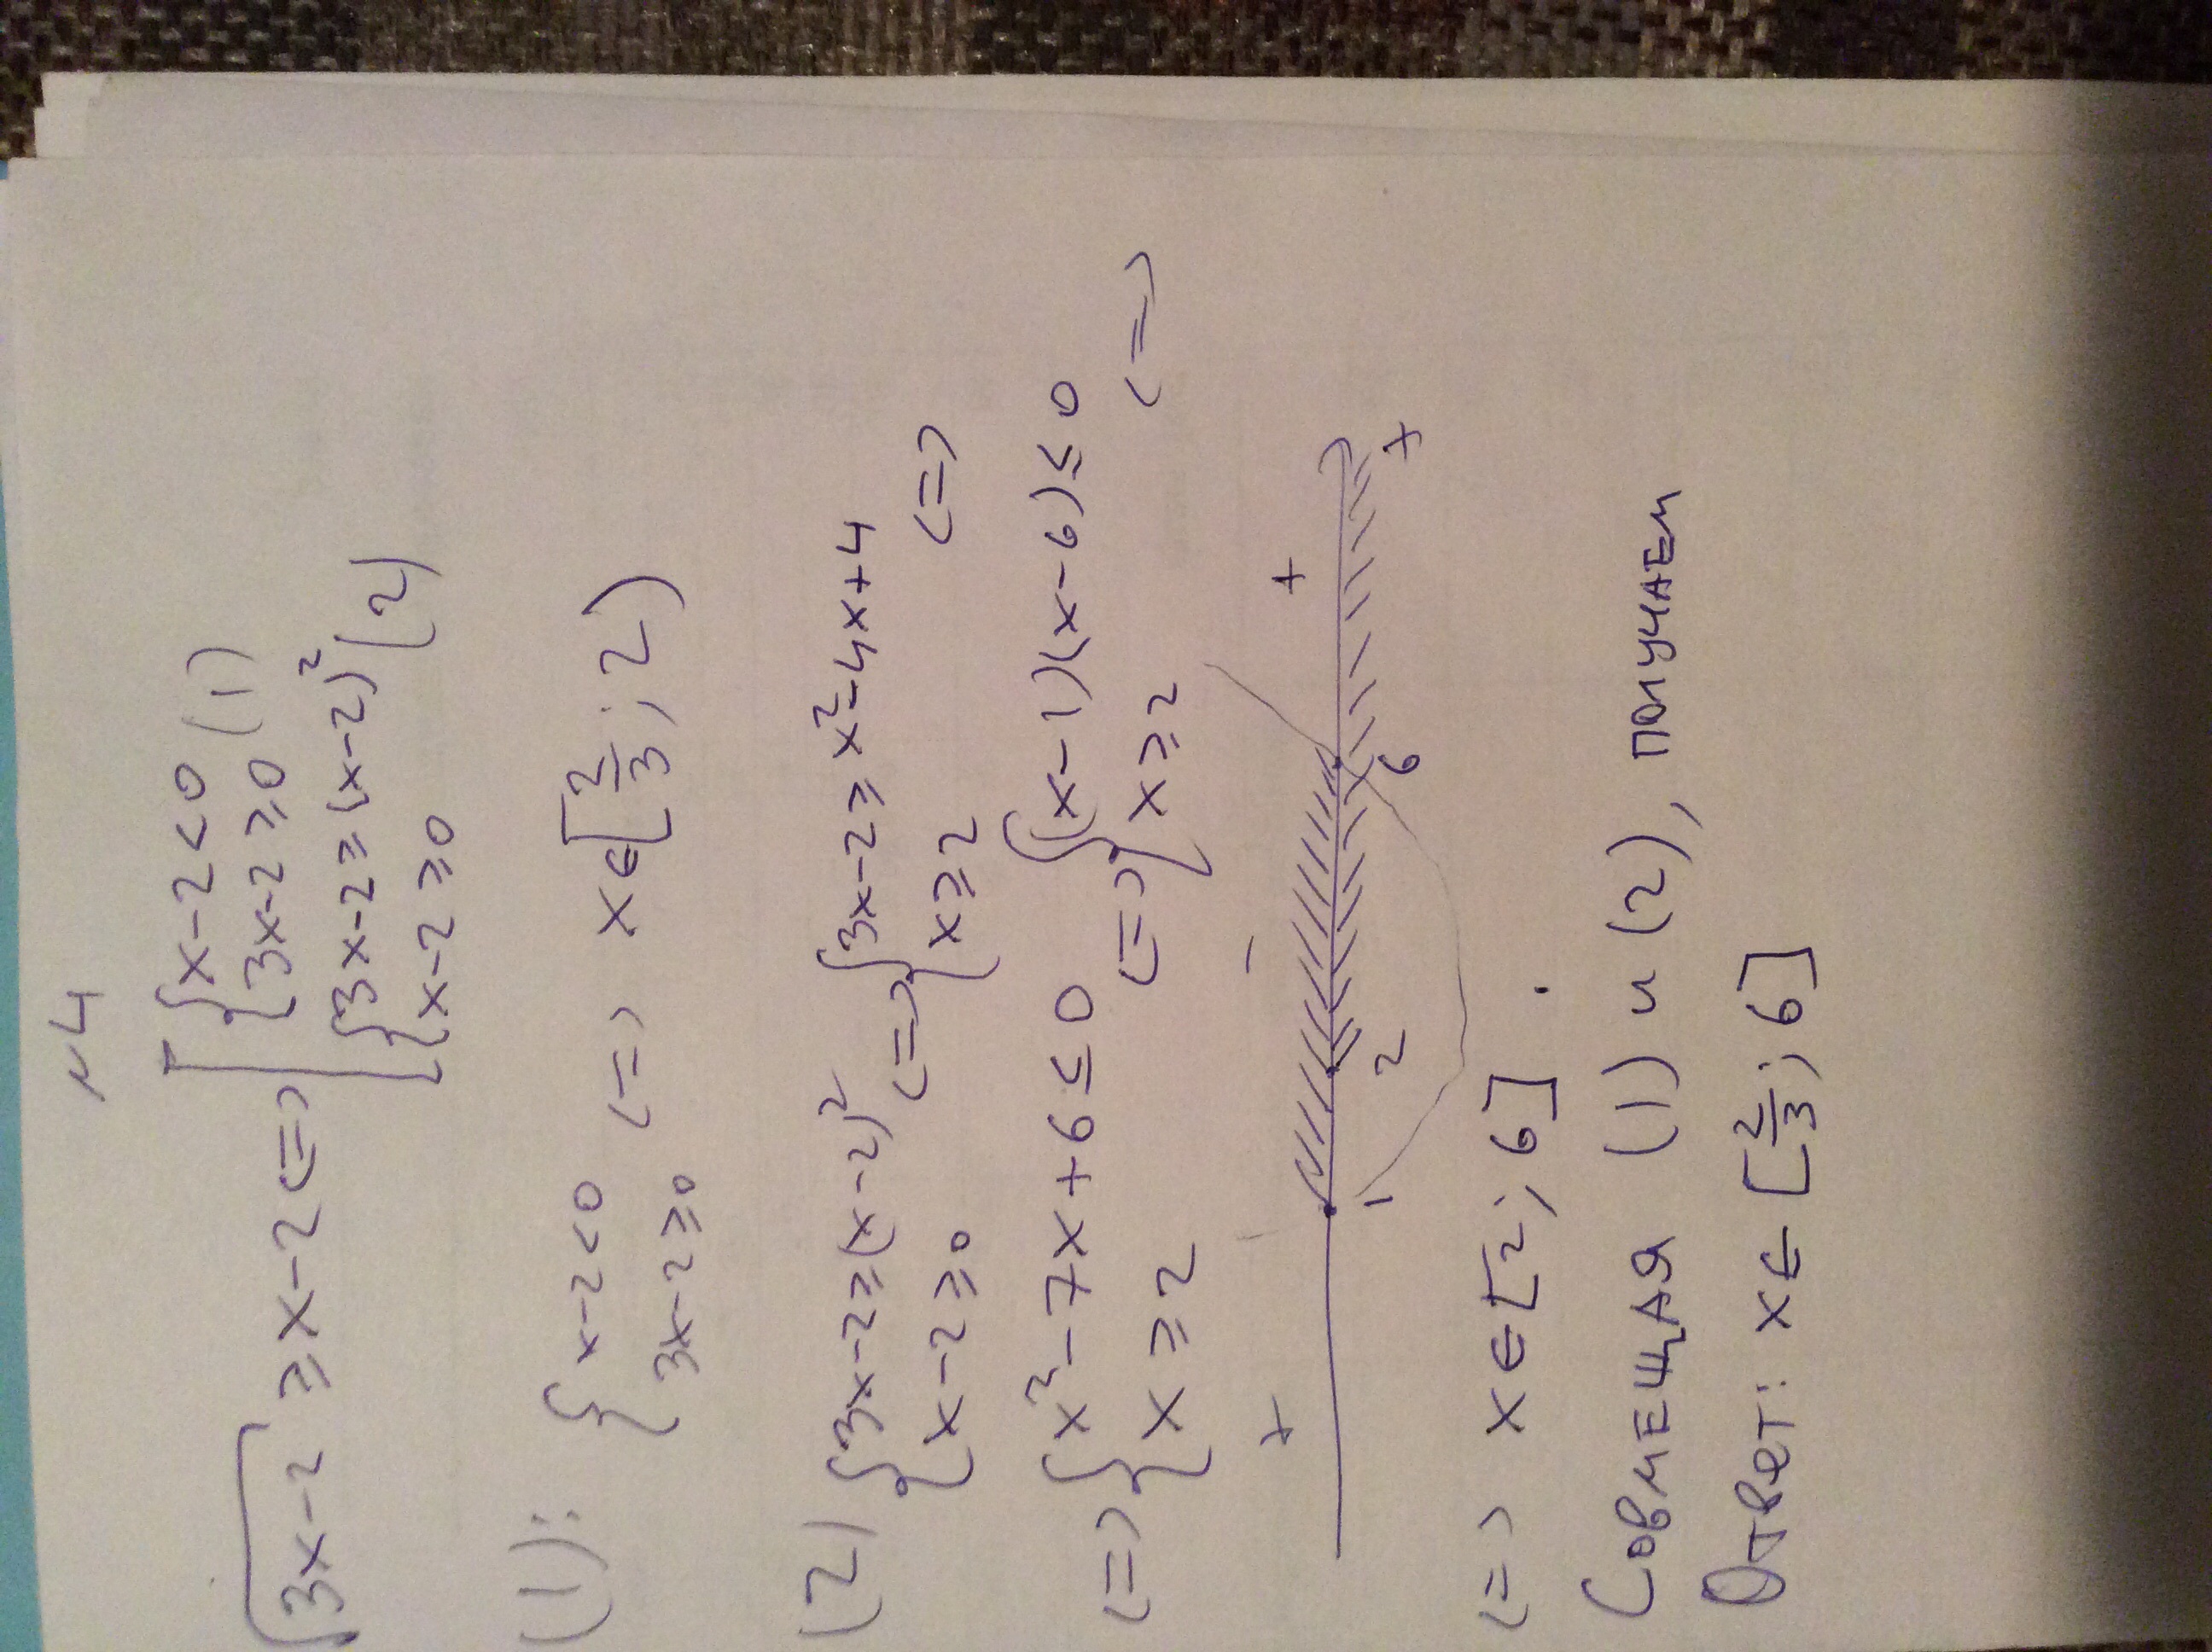 №4
√3x-2 ≥ x-2 <=> [ { x-2<0 (1)
{ 3x-2≥0
{ 3x-2≥(x-2)² (2)
{ x-2≥0
(1): { x-2<0 <=> x∈[2/3; 2)
3x-2≥0
(2) { 3x-2≥(x-2)² <=> { 3x-2≥x²-4x+4 <=>
x-2≥0 x≥2
<=> { x²-7x+6≤0 <=> { (x-1)(x-6)≤0 <=>
x≥2 x≥2
+ - +
1 2 6 x
<=> x∈[2; 6].
Совмещая (1) и (2), получаем
Ответ: x∈[2/3; 6]